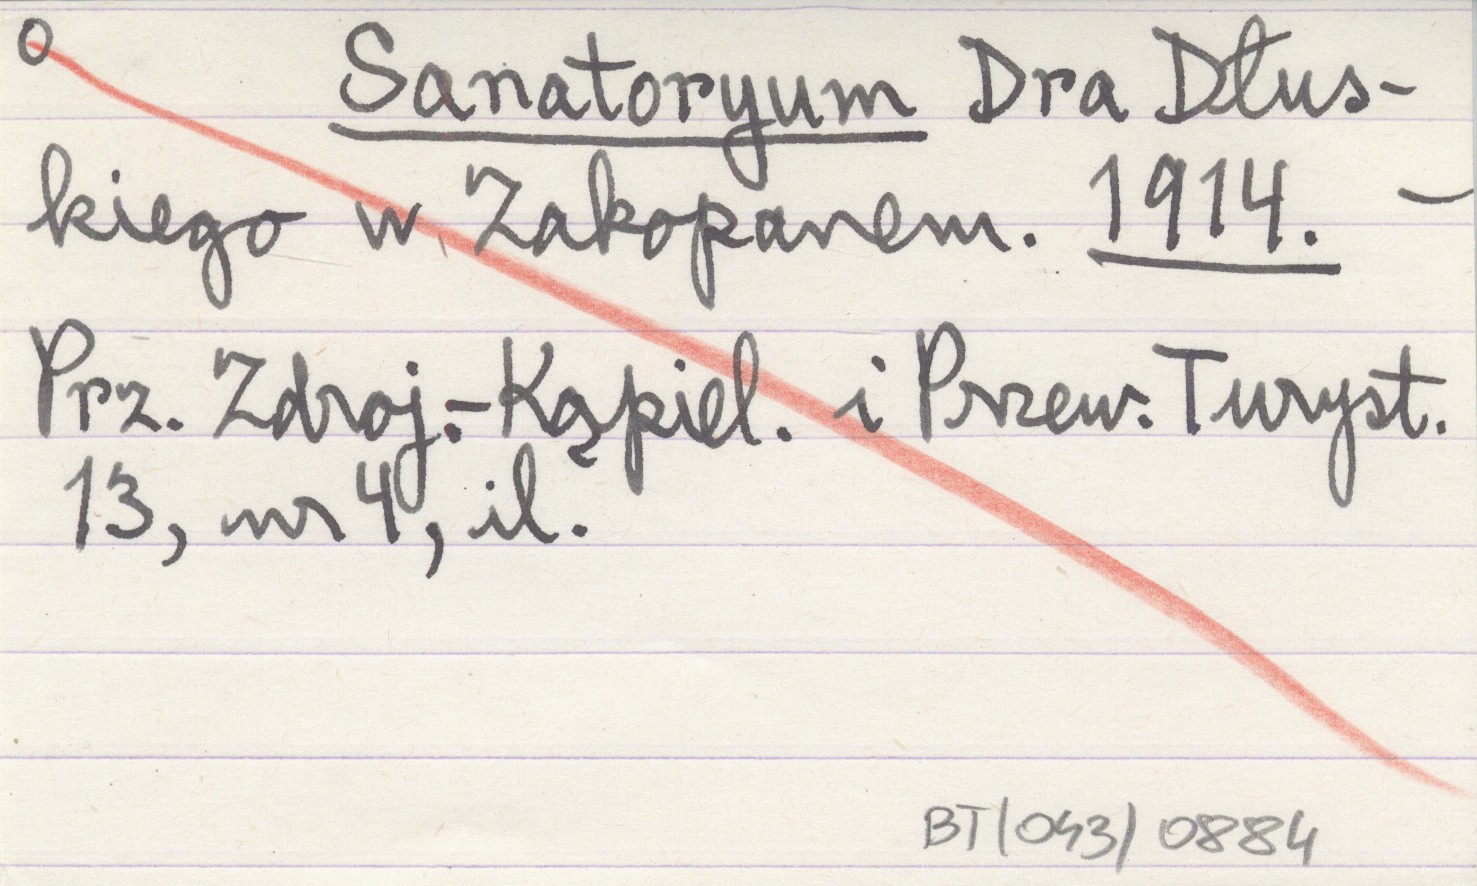 o Sanatoryum Dra Dłus-
kiego w Zakopanem. 1914. -
Prz. Zdroj.-Kąpiel. i Przew. Turyst.
13, nr 4, il.
BT/043/0884